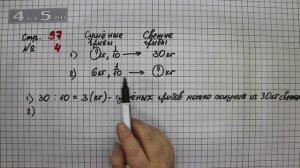 4 да 5.
Стр. 97
№ 4
Сушёные грибы
Свежие грибы
1) ? кг, 1/10 → 30 кг
2) 6 кг, 1/10 → ? кг
1) 30 : 10 = 3 (кг) - сушёных грибов можно получить из 30 кг свежих
2)